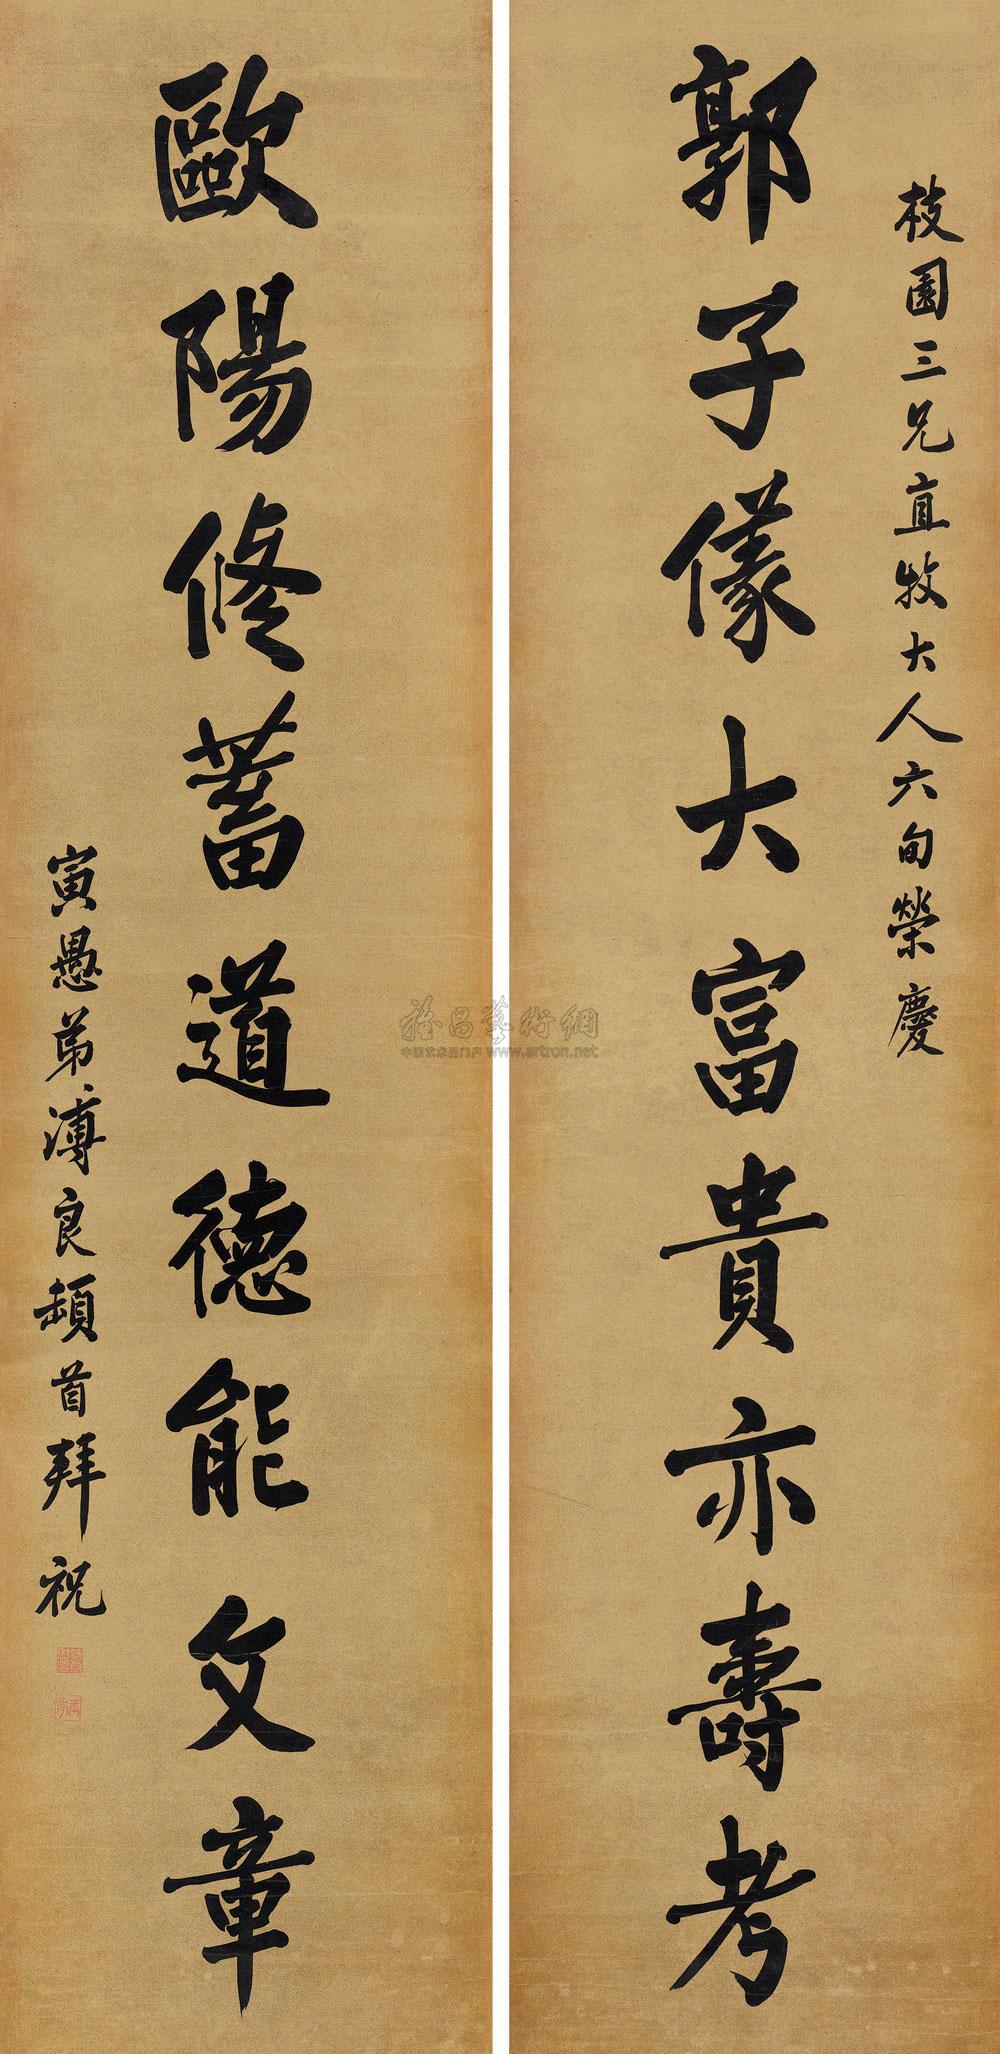 枝園三兄直牧大人六旬榮慶
郭子儀大富貴亦壽考
歐陽修蓄道德能文章
寅愚弟溥良頓首拜祝
雅昌藝術網
中国艺术品门户 www.artron.net